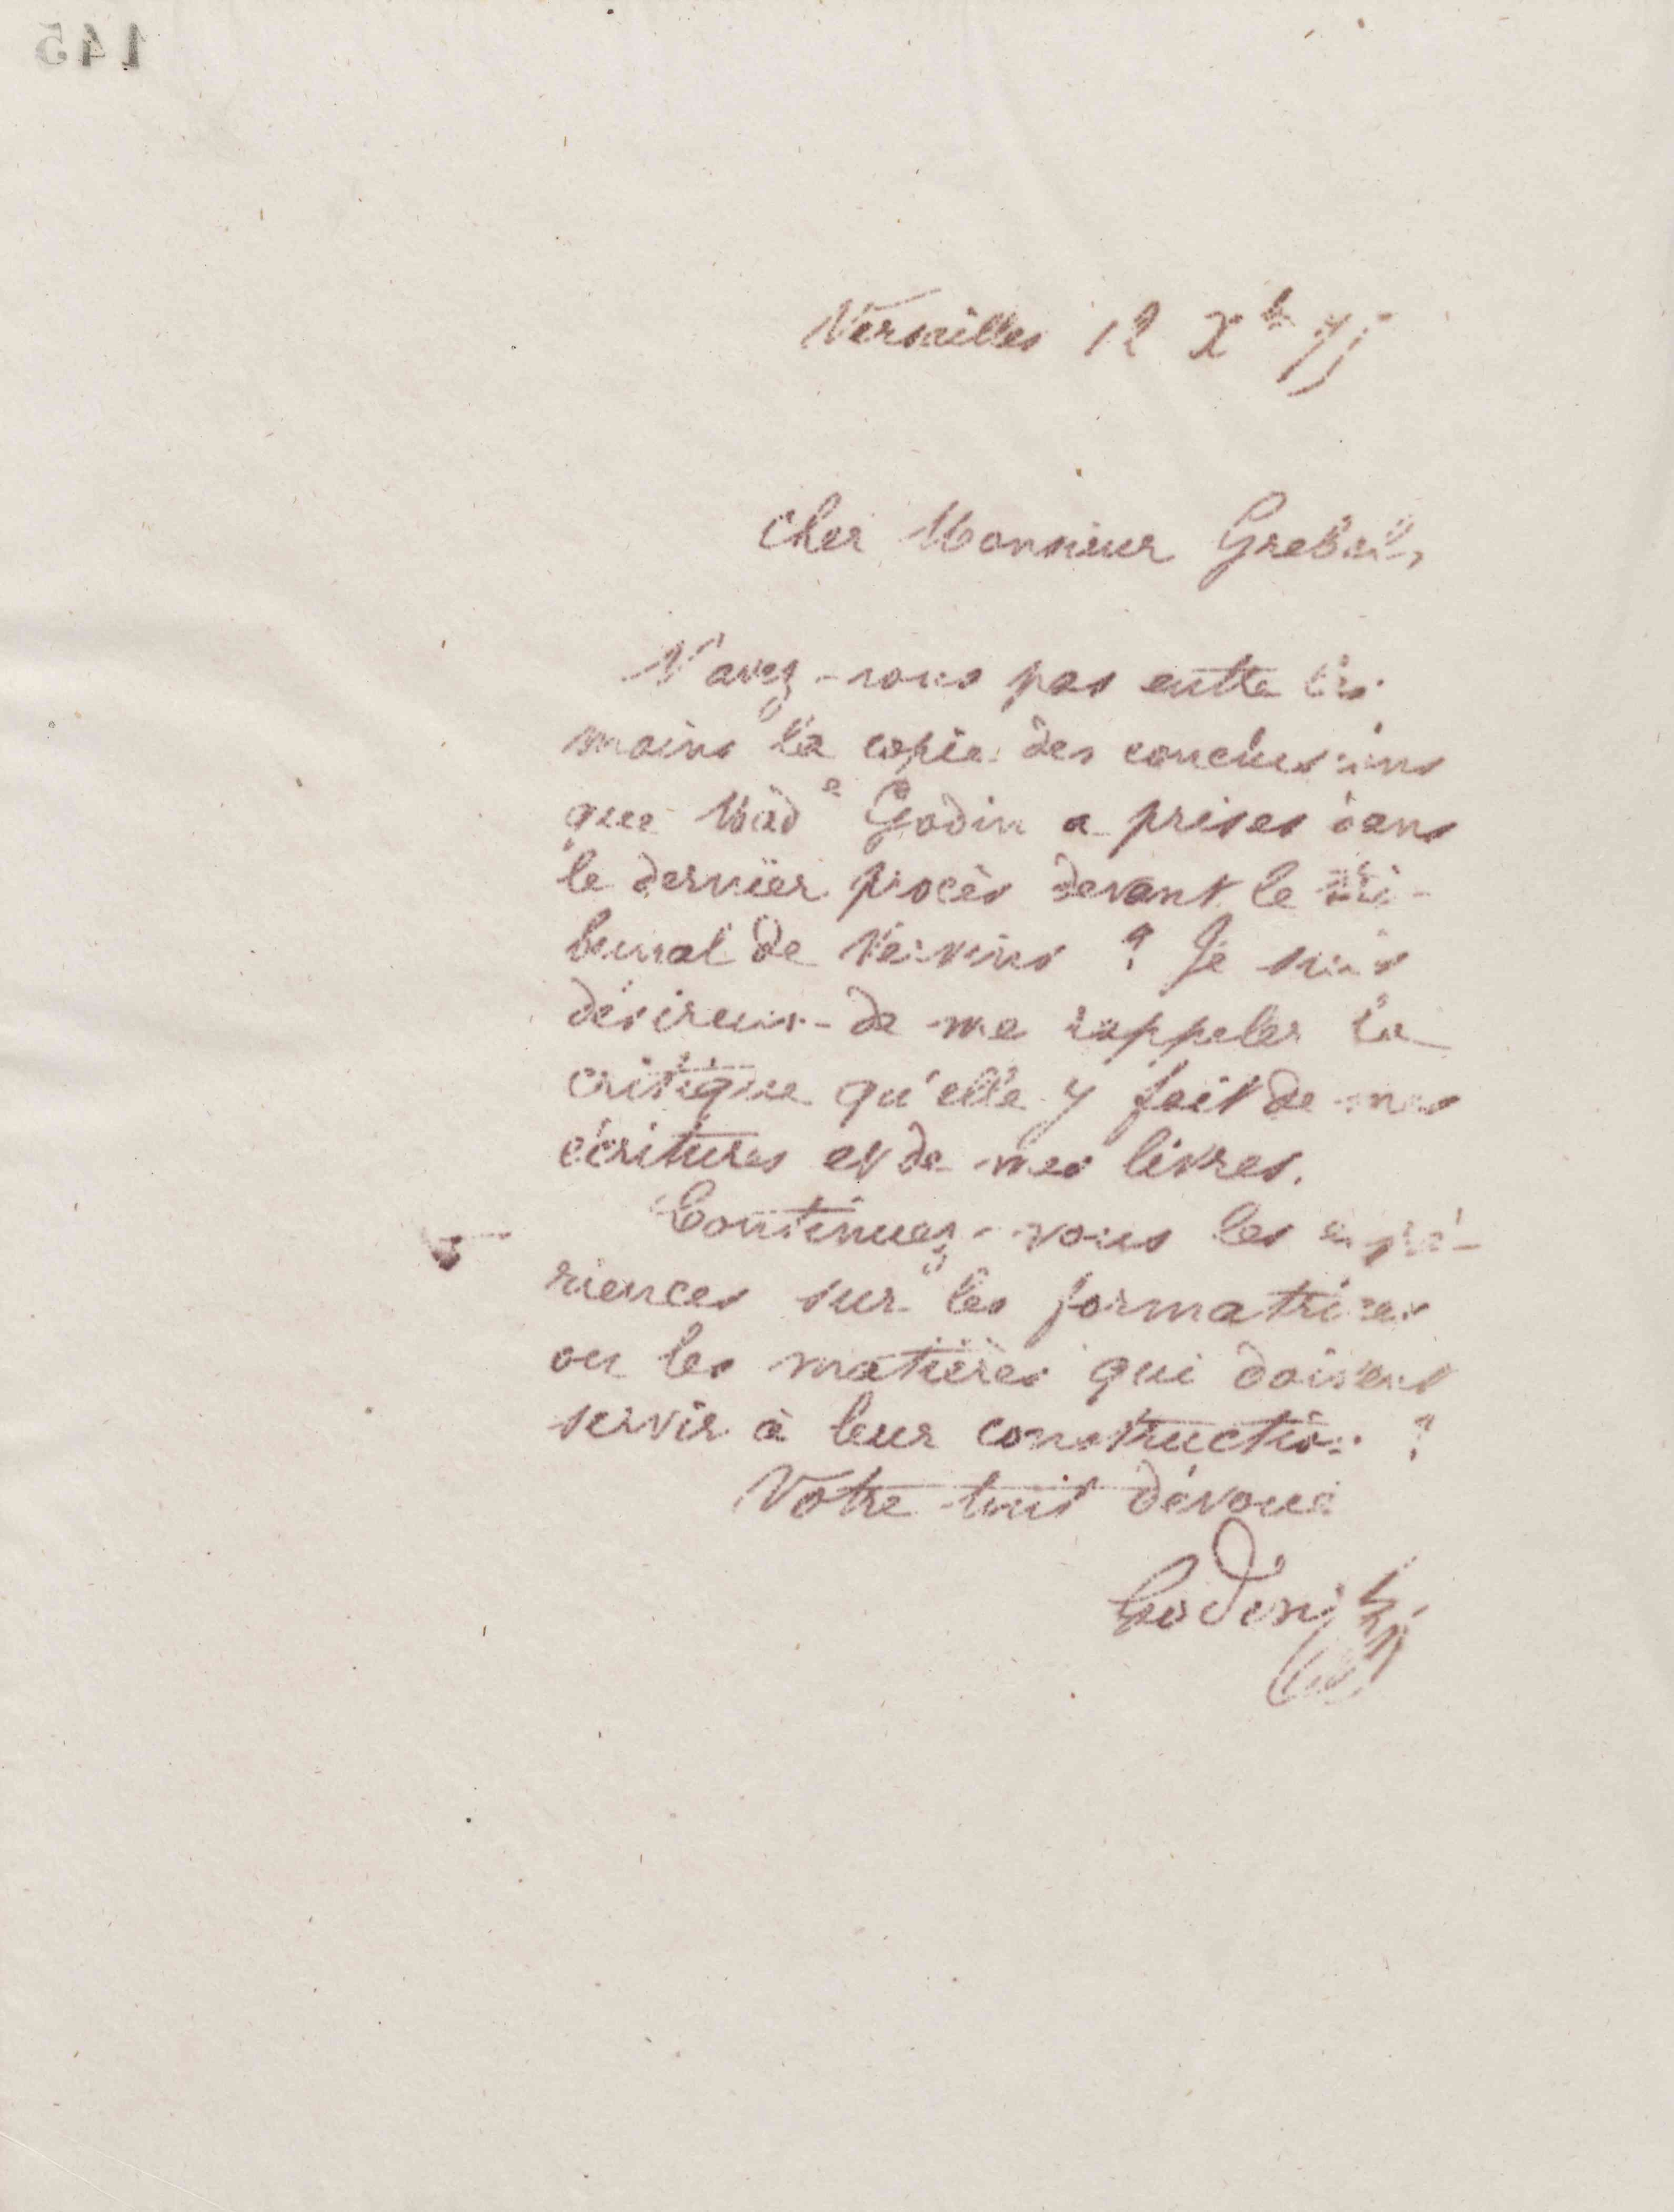 145
Versailles 12 Xb 75
Cher Monsieur Grebel,
N'avez-vous pas entre les
mains la copie des conclusions
que Made Godin a prises dans
le dernier procès devant le tri-
bunal de Vervins ? Je suis
désireux de me rappeler la
critique qu'elle y fait de mes
écritures et de mes livres.
Continuez-vous les expé-
riences sur les formatrices
ou les matières qui doivent
servir à leur construction ?
Votre tout dévoué
Godin